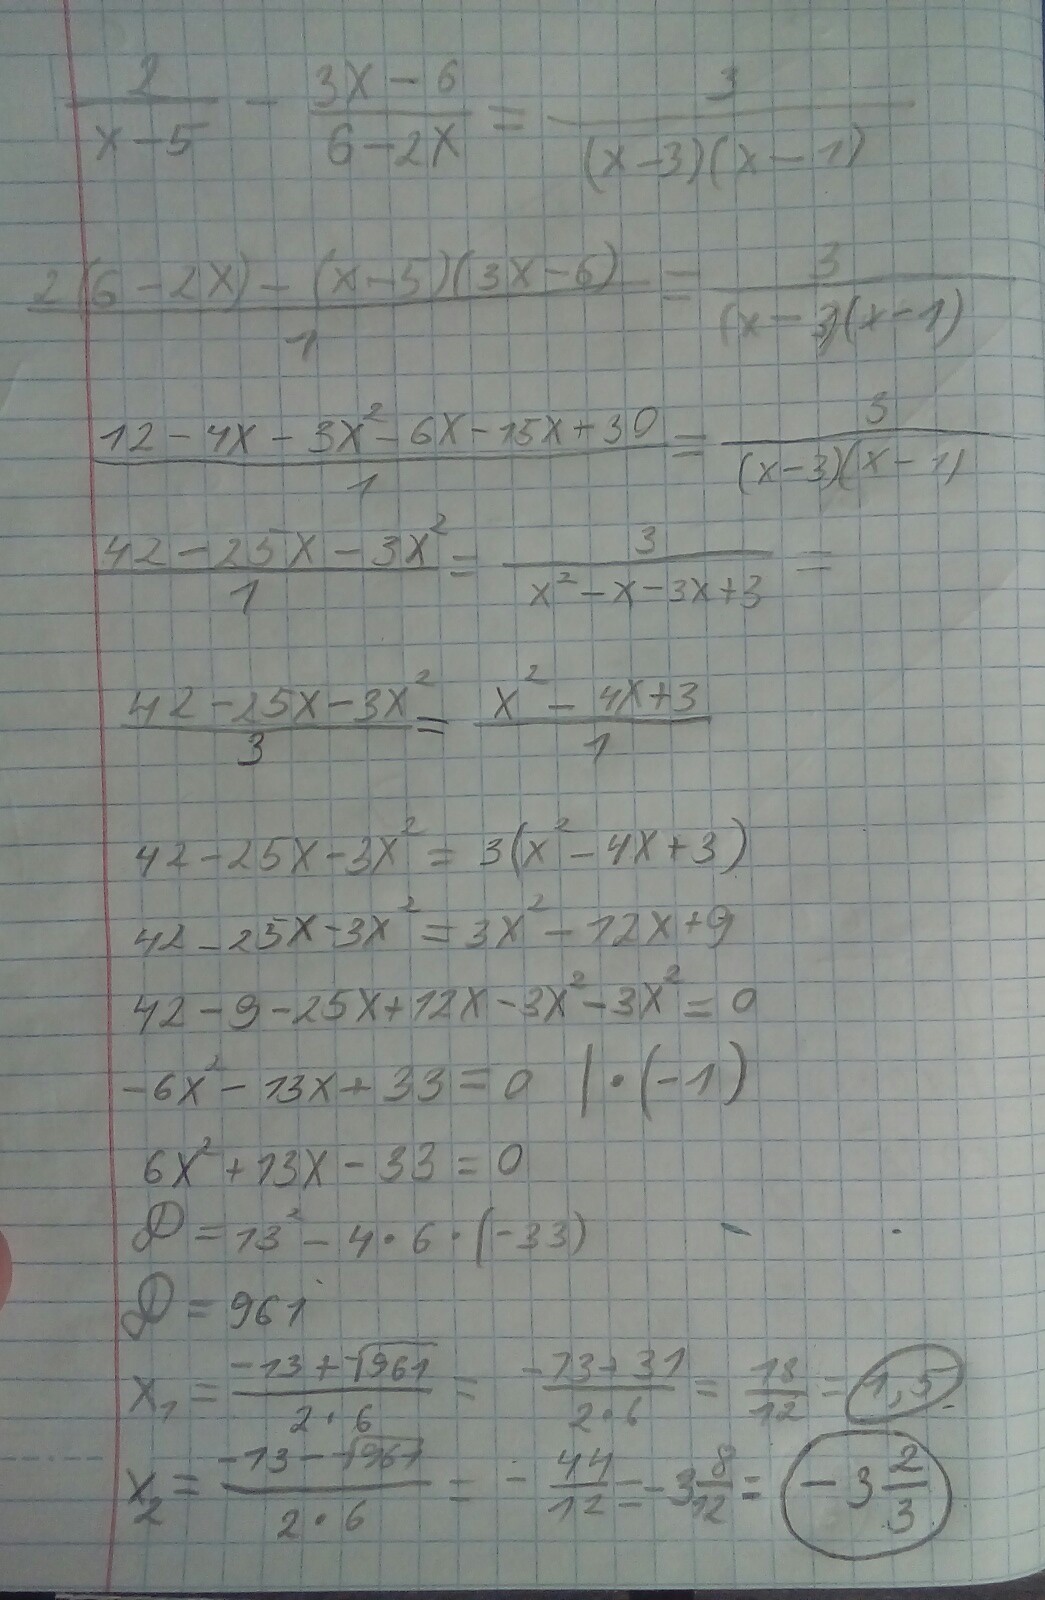 2/(x-5) - (3x-6)/(6-2x) = 3/((x-3)(x-1))
(2(6-2x)-(x-5)(3x-6))/1 = 3/((x-3)(x-1))
(12-4x-3x²-6x-15x+30)/1 = 3/((x-3)(x-1))
(42-25x-3x²)/1 = 3/(x²-x-3x+3) =
(42-25x-3x²)/3 = (x²-4x+3)/1
42-25x-3x² = 3(x²-4x+3)
42-25x-3x² = 3x²-12x+9
42-9-25x+12x-3x²-3x² = 0
-6x²-13x+33 = 0 |·(-1)
6x²+13x-33 = 0
D = 13²-4·6·(-33)
D = 961
x₁ = (-13+√961)/(2·6) = (-13+31)/(2·6) = 18/12 = 1,5
x₂ = (-13-√961)/(2·6) = -44/12 = -3 8/12 = -3 2/3